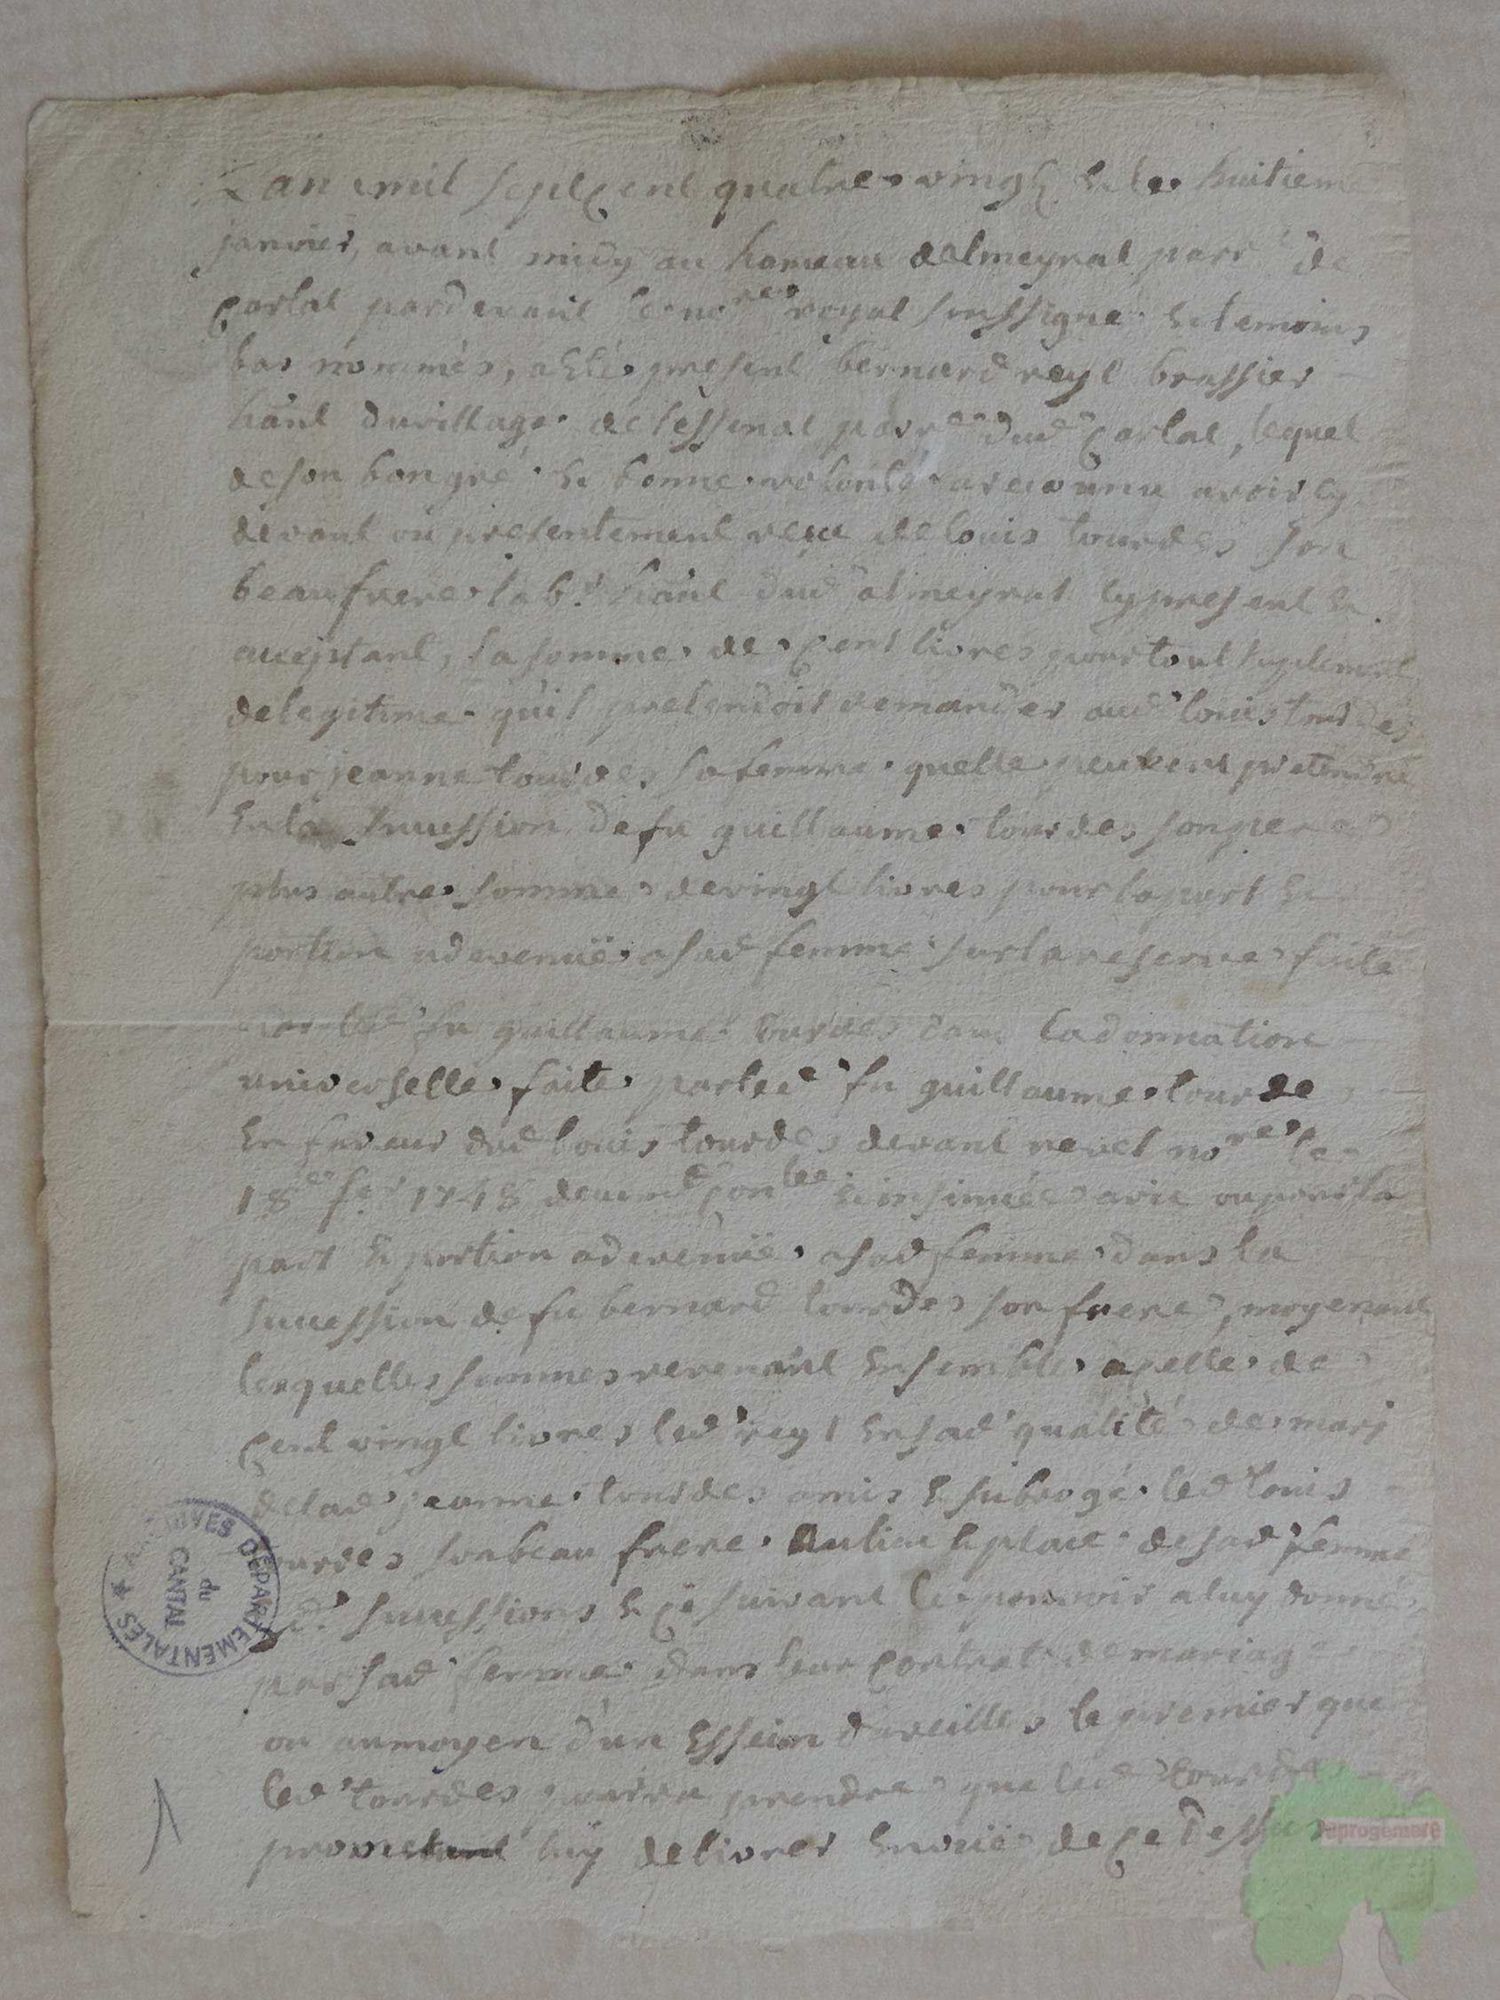 Lan mil septcent quatre vingt & le huitieme
janvier, avant midy au hameau delmeyrat parr. de
Carlat pardevant le no.re royal soussigné & temoins
bas nommés, a été present bernard reyt brassier
hānt du village de lessenat parr. dud Carlat, lequel
de son bon gré & bonne volonté a reconnu avoir cy
devant ou presentement reçu de louis tourdes son
beaufrere lab.r hānt dud almeyrat cy present &
acceptant, la somme de cent livres pour tout suplement
delegitime quil pretendoit demander aud louis tourdes
pour jeanne tourdes sa femme quelle peut pretendre
En la sucession defu guillaume tourdes son pere
plus autre somme de vingt livres pour la part &
portion adevenuë asad femme sur la reserve faite
par led fu guillaume tourdes dans la donnation
universelle faite par led fu guillaume tourdes
En faveur dud louis tourdes devant revel no.re le
18e fr. 1748 duem.t con.lee & insinuée avec ou pour la
part & portion adevenuë asad femme dans la
sucession defu bernard tourdes son frere, moyenant
lesquelles sommes revenant Ensemble a celle de
Cent vingt livres led reyt En sad qualité de mary
de lad jeanne tourdes a mis & subrogé led louis
tourdes son beau frere Au lieu & place de sad femme
d. sucessions & ce suivant le pouvoir a luy donné
par sad femme dans leur Contrat de mariag
ou aumoyen d'un Esseim d'aveilles le premier que
led tourdes pourra prendre que led tourdes
promet luy delivrer En vuë de Ce Dessus
ARCHIVES DÉPARTEMENTALES
du
CANTAL
reprogemere